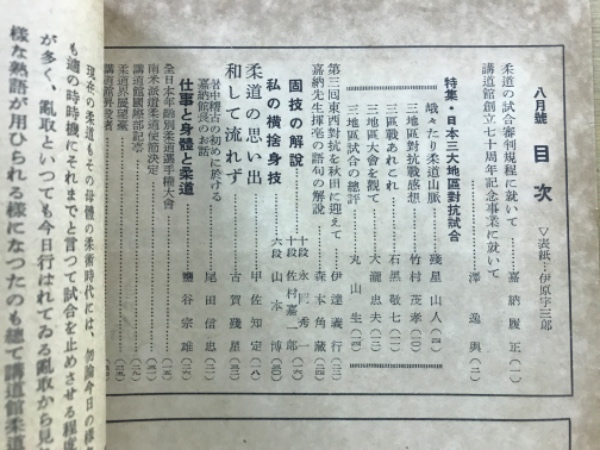 八月號 目次 ▽表紙…伊原宇三郎
柔道の試合審判規程に就いて 嘉納履正(一)
講道館創立七十周年記念事業に就いて 澤逸與(二)
特集・日本三大地區對抗試合
峨々たり柔道山脈 殘星山人(四)
三地區對抗戰感想 竹村茂孝(一〇)
三區戰あれこれ 石黑敬七(一一)
三地區大會を觀て 大瀧忠夫(一三)
三地區試合の總評 丸山生(一四)
第三回東西對抗を秋田に迎えて 伊達義行(二三)
嘉納先生揮毫の語句の解說 森本角藏(二四)
固技の解說 十段 永岡秀一 十段 佐村嘉一郎(一六)
私の橫捨身技 六段 山本博(三〇)
柔道の思い出 甲佐知定(一八)
和して流れず 古賀殘星(二三)
暑中稽古の初めに於ける
嘉納館長のお話 尾田信忠(二二)
仕事と身體と柔道 鹽谷宗雄(二六)
全日本年齡別柔道選手權大會(一五)
南米派遣柔道使節決定
講道館國際部記事
柔道界展望藏
講道館昇段者
現在の柔道もその母體の柔術時代には、勿論今日の樣
も適の時時機にそれまでと言つて試合を止めさせる程度
が多く、亂取といつても今日行はれてゐる亂取から見
樣な熟語が用ひられる樣になつたのも總て講道館柔道